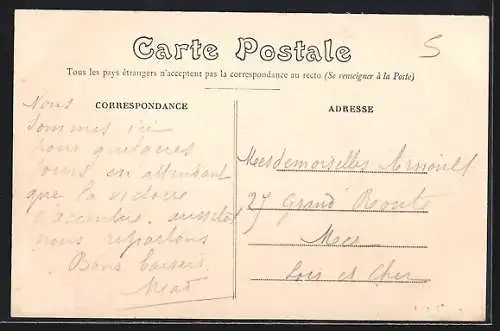 Carte Postale
5
Tous les pays étrangers n'acceptent pas la correspondance au recto (Se renseigner à la Poste)
CORRESPONDANCE
Nous
sommes ici
pour quelques
jours en attendant
que la victoire
s'accentue. aussitot
nous repartons
Bons baisers
ADRESSE
Mesdemoiselles Arnoult
27 Grand Route
Mer
Loir et Cher